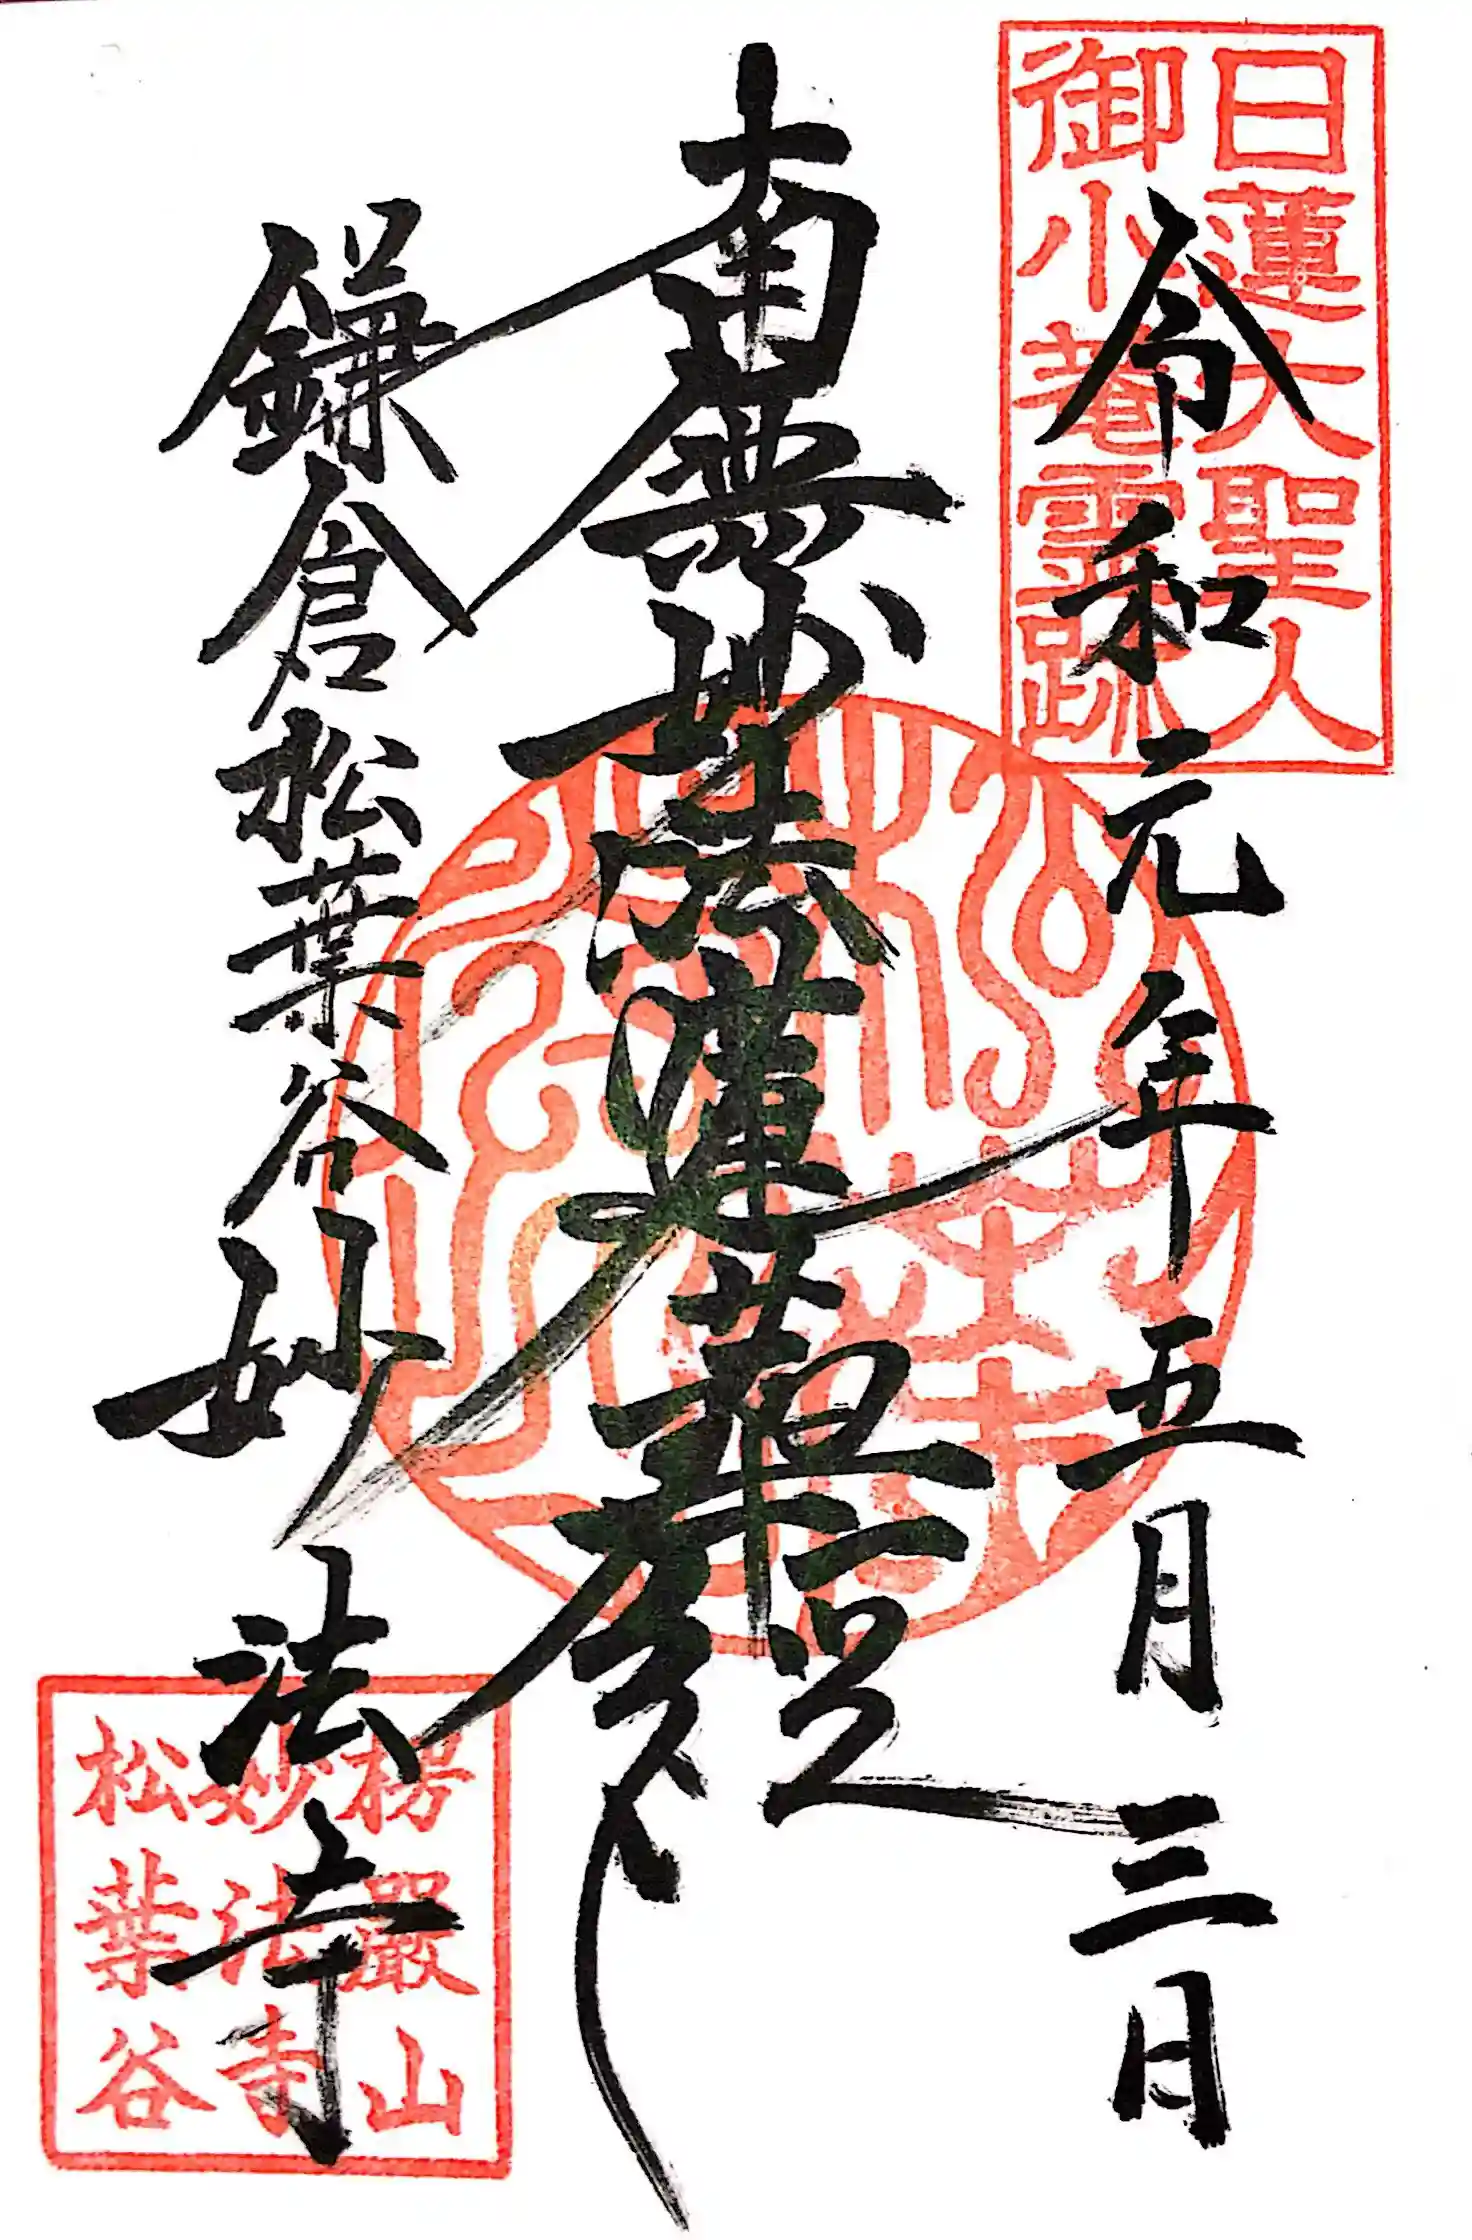 日蓮大聖人
御小菴霊跡
令和元年五月三日
南無妙法蓮華經
鎌倉松葉谷妙法寺
楞嚴山
妙法寺
松葉谷